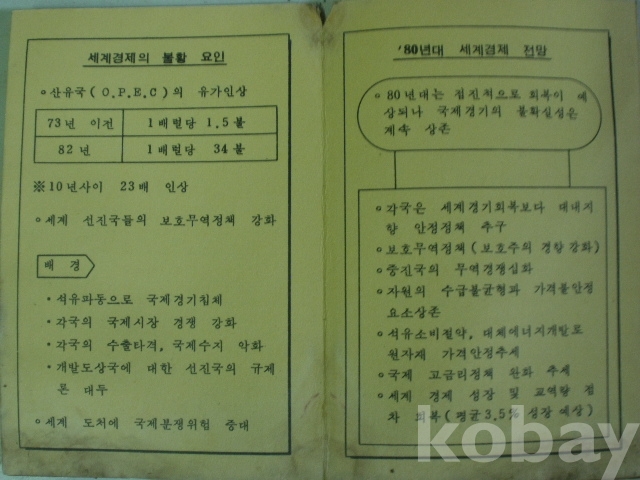 세계경제의 불황 요인
o산유국(O.P.E.C)의 유가인상
73년 이전 1배럴당 1.5불
82년 1배럴당 34불
※10년사이 23배 인상
o세계 선진국들의 보호무역정책 강화
배경
·석유파동으로 국제경기침체
·각국의 국제시장 경쟁 강화
·각국의 수출타격, 국제수지 악화
·개발도상국에 대한 선진국의 규제
론 대두
o세계 도처에 국제분쟁위험 증대
'80년대 세계경제 전망
o80년대는 점진적으로 회복이 예
상되나 국제경기의 불확실성은
계속 상존
o각국은 세계경기회복보다 대내지
향 안정정책 추구
o보호무역정책(보호주의 경향 강화)
o중진국의 무역경쟁심화
o자원의 수급불균형과 가격불안정
요소상존
o석유소비절약, 대체에너지개발로
원자재 가격안정추세
o국제 고금리정책 완화 추세
o세계 경제 성장 및 교역량 점
차 회복(평균3.5% 성장 예상)
kobay